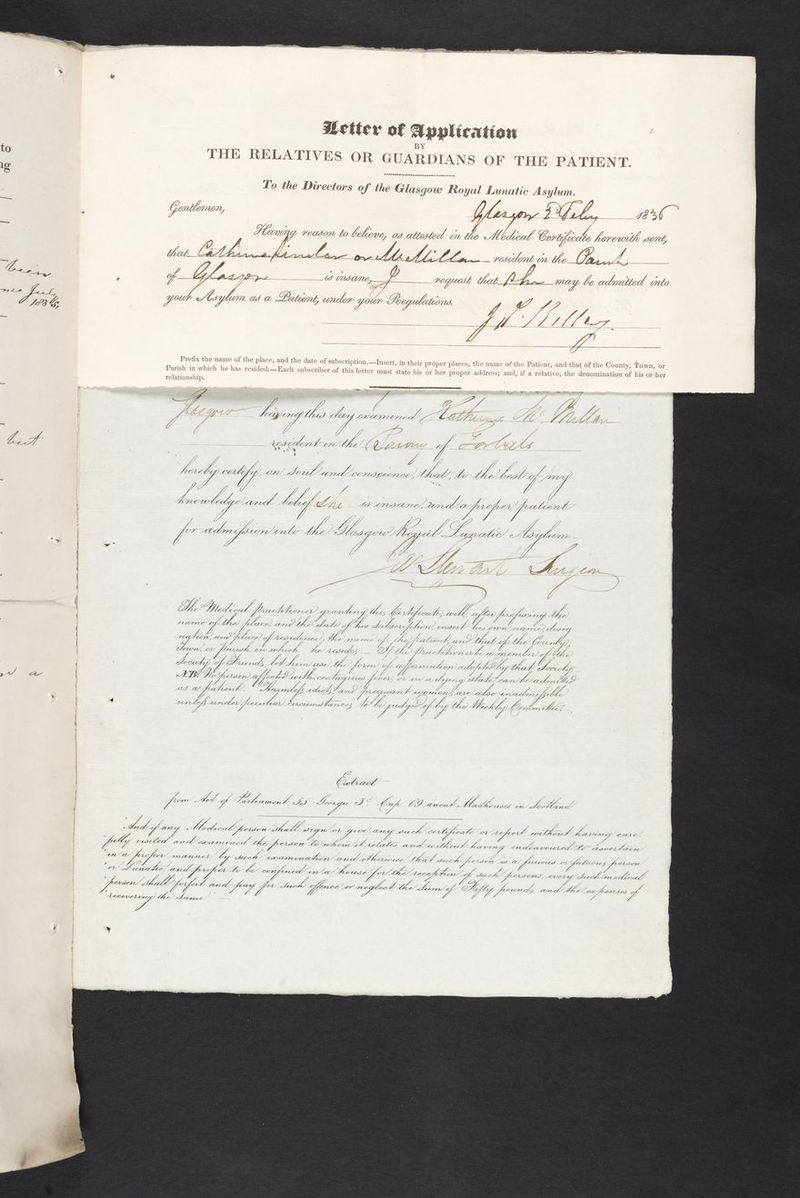 Letter of Application
BY
THE RELATIVES OR GUARDIANS OF THE PATIENT.
To the Directors of the Glasgow Royal Lunatic Asylum.
Gentlemen,
Glasgow Feby 1836
Having reason to believe, as attested in the Medical Certificate herewith sent,
that Catherine or McMillan resident in the Parish
of Glasgow is insane, I request that she may be admitted into
your Asylum as a Patient, under your Regulations.
Prefix the name of the place, and the date of subscription.—Insert, in their proper places, the name of the Patient, and that of the County, Town, or
Parish in which he has resided.—Each subscriber of this letter must state his or her proper address; and, if a relative, the denomination of his or her
relationship.
Glasgow having this day examined Katherine Mc Millan
resident in the of Gorbals
hereby certify, on soul and conscience, that, to the best of my
knowledge and belief she is insane, and a proper patient
for admission into the Glasgow Royal Lunatic Asylum.
Stewart Surgeon
The Medical Practitioner granting this Certificate, will, after prefixing the
name of the place, and the date of his subscription, insert his own name, desig
nation, and place of residence, the name of the patient, and that of the County,
Town, or Parish in which he resides. — If the Practitioner be a member of the
Society of Friends, let him use the form of affirmation adopted by that Society.
NB. No person affected with contagious fever, or in a dying state, can be admitted
as a patient. Harmless idiots, and pregnant women, are also inadmissible
unless under peculiar circumstances to be judged of by the Weekly Committee.
Extract
from Act of Parliament 55 George 3d Cap 69 anent Madhouses in Scotland
"And if any Medical person shall sign or give any such certificate or report without having care
"fully visited and examined the person to whom it relates and without having endeavoured to ascertain
"in a proper manner by such examination and otherwise that such person is a furious or fatuous person
"or Lunatic, and proper to be confined in a house for the reception of such persons, every such medical
"person shall forfeit and pay for such offence or neglect the sum of Fifty pounds, and the expenses of
"recovering the same
to
ng
been
July
1835,
but
a